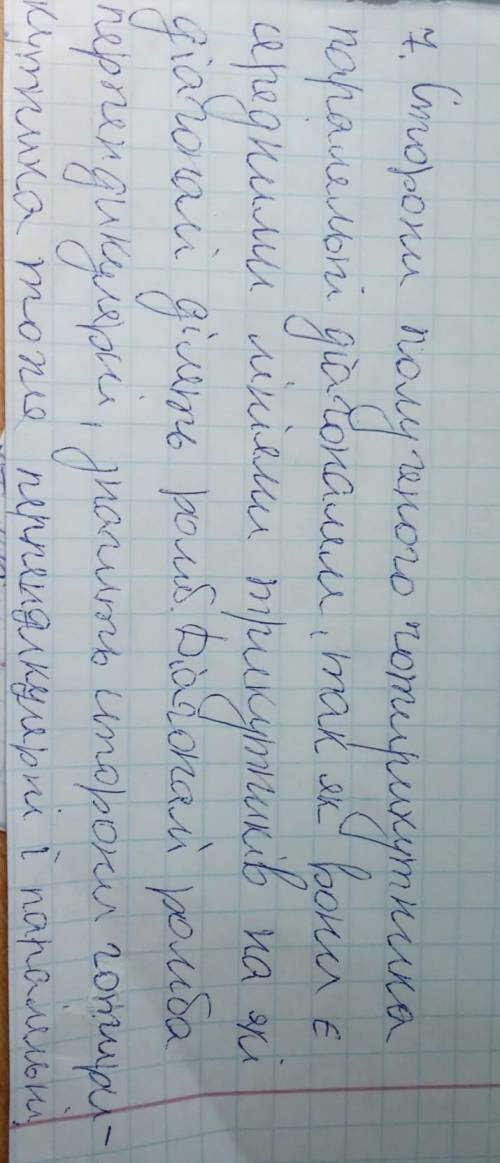 7. Сторони полученого чотирикутника
паралельні діагоналям, так як вони є
середними лініями трикутників на які
діагоналі ділять ромб. Діагоналі ромба
перпендикулярні, значить сторони чотири-
кутника тоже перпендикулярні і паралельні